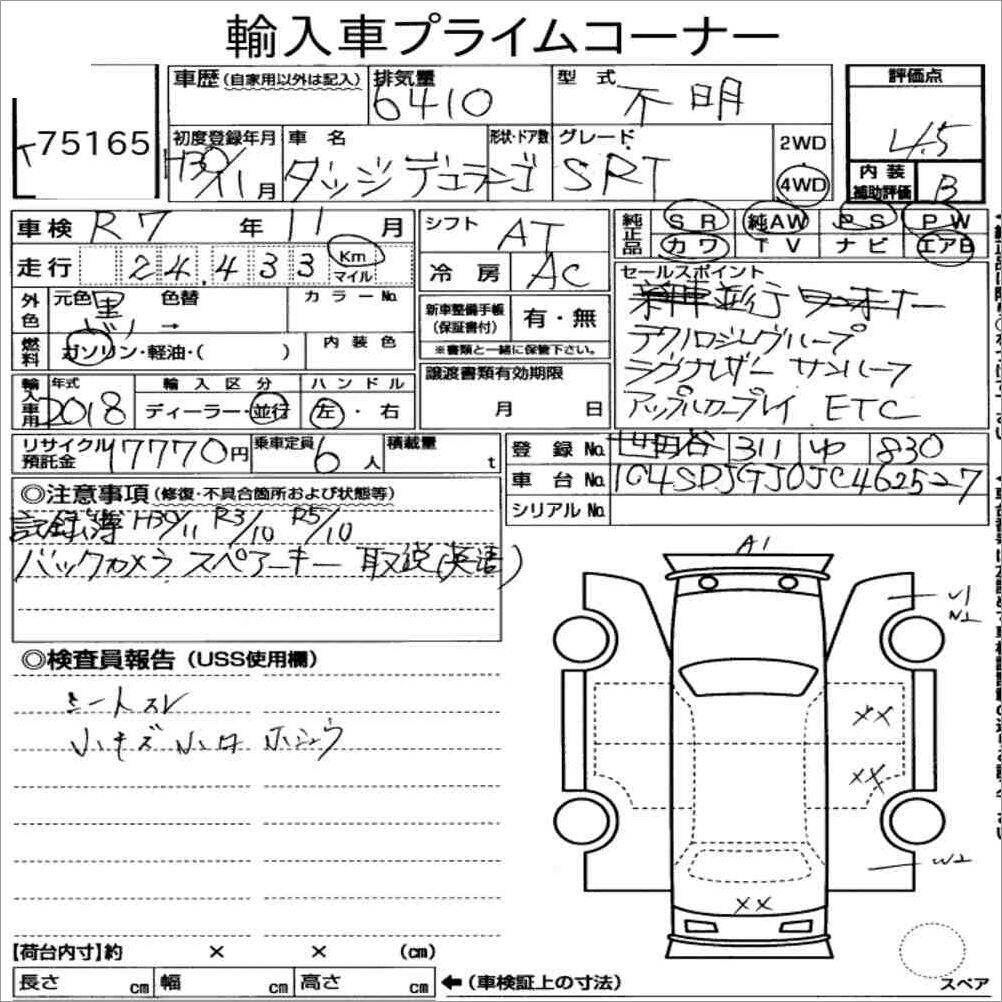 輸入車プライムコーナー
75165
車歴 (自家用以外は記入)
排気量
6410
型式
不明
評価点
4.5
初度登録年月
H30/11月
車名
ダッジ デュランゴ
形状・ドア数
グレード
SRT
2WD
4WD
内装補助評価
B
車検 R7年 11月
シフト
AT
純正品
SR 純AW PS PW
カワ TV ナビ エアB
走行 24,433 Km マイル
冷房
AC
セールスポイント
新車並行 ワンオーナー
テクノロジーグループ
ラグナレザー サンルーフ
アップルカープレイ ETC
外色
元色 黒 色替 →
カラーNo.
新車整備手帳(保証書付)
有・無
※書類と一緒に保管下さい。
燃料
ガソリン・軽油・( )
内装色
譲渡書類有効期限
月 日
輸入車用
年式
2018
輸入区分
ディーラー・並行
ハンドル
左・右
リサイクル預託金 17770円
乗車定員 6人
積載量 t
登録No. 世田谷 311 ゆ 830
車台No. 1C4SDJGJ0JC462527
シリアルNo.
◎注意事項 (修復・不具合箇所および状態等)
記録簿 H30/11 R3/10 R5/10
バックカメラ スペアーキー 取説(英語)
◎検査員報告 (USS使用欄)
シートスレ
小キズ 小凹 ホシュウ
A1
U1
XX
XX
W2
XX
【荷台内寸】約 × × (cm)
長さ cm 幅 cm 高さ cm ←(車検証上の寸法)
スペア